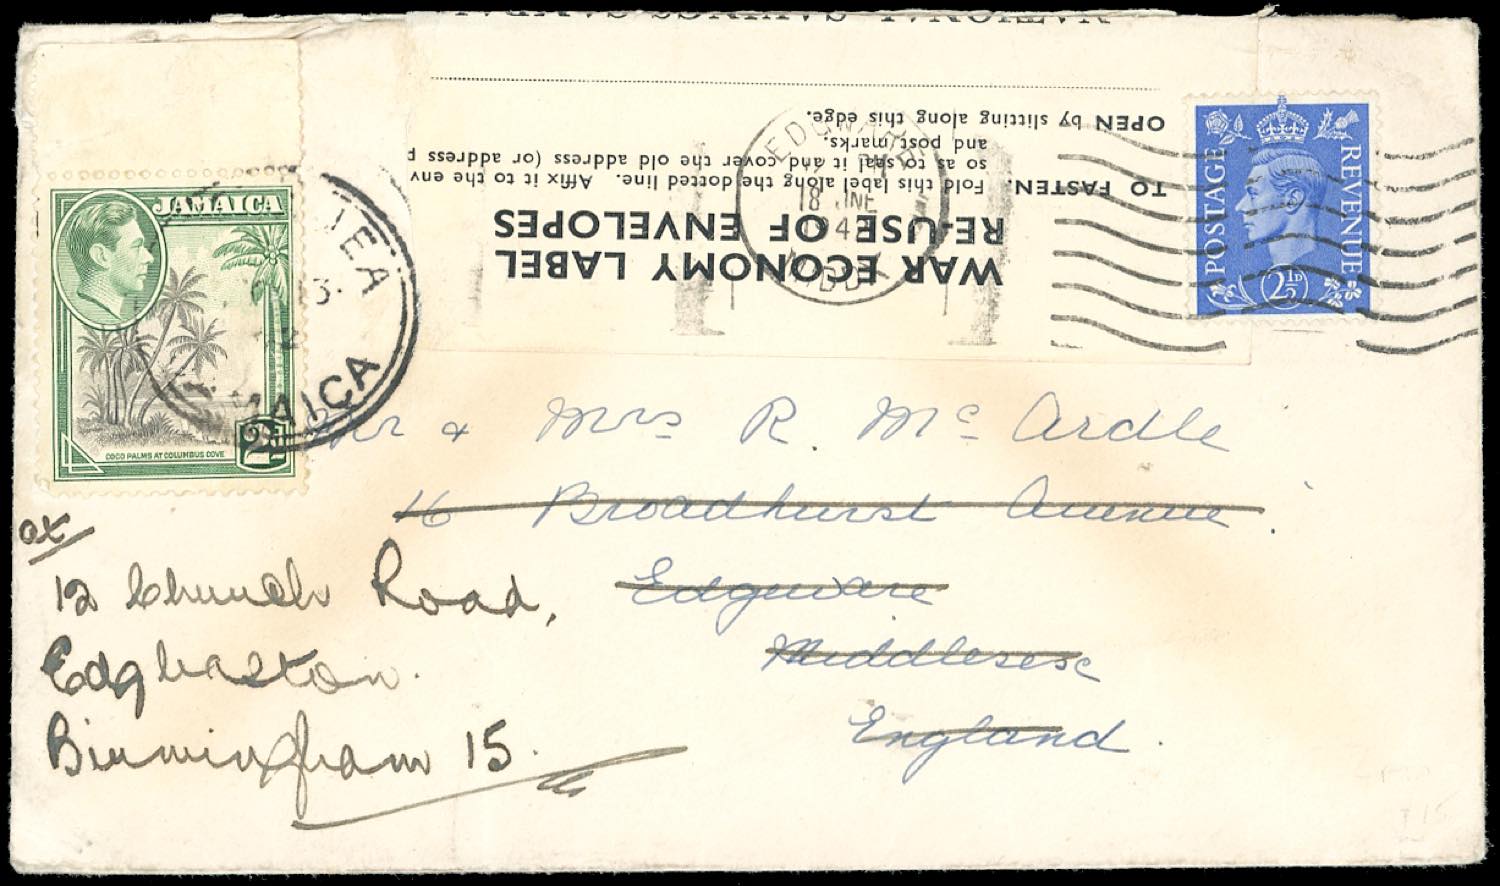 NATIONAL SAVINGS STAMPS
OPEN by slitting along this edge.
and post marks.
so as to seal it and cover the old address (or address p
TO FASTEN. Fold this label along the dotted line. Affix it to the env
RE-USE OF ENVELOPES
WAR ECONOMY LABEL
JAMAICA
COCO PALMS AT COLUMBUS COVE
2D
JAMAICA
EDGWARE
18 JNE
MIDDX
POSTAGE
REVENUE
2½D
Mr & Mrs R. Mc Ardle
16 Broadhurst Avenue
Edgeware
Middlesex
England.
at
12 Church Road,
Edgbaston.
Birmingham 15.